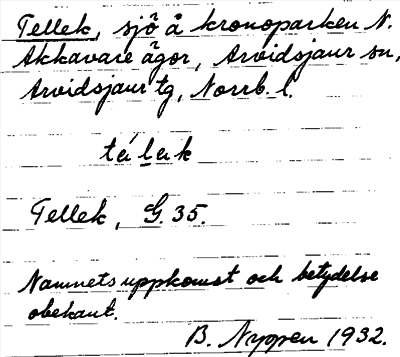 Tellek, sjö å kronoparken N.
Akkavare ägor, Arvidsjaur sn,
Arvidsjaur tg, Norrb. l.
tálak
Tellek, G. 35.
Namnets uppkomst och betydelse
obekant.
B. Nyppen 1932.